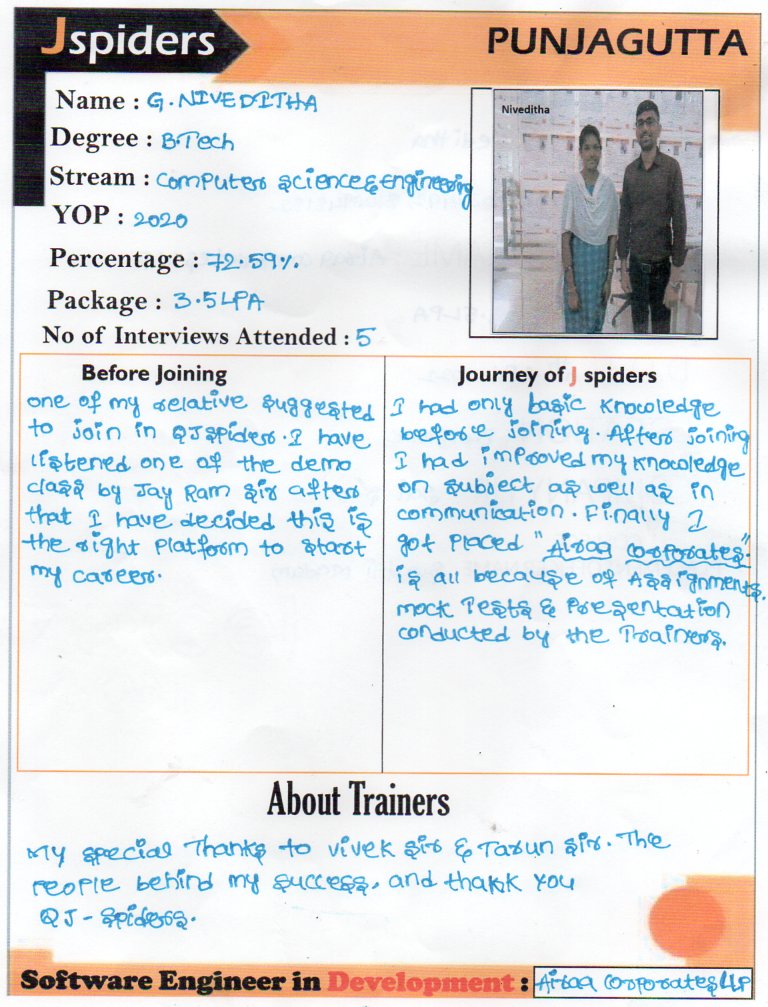 Jspiders
PUNJAGUTTA
Name : G. NIVEDITHA
Degree : B.Tech
Stream : Computer science & engineering
YOP : 2020
Percentage : 72.59%
Package : 3.5LPA
No of Interviews Attended : 5
Niveditha
Before Joining
one of my relative suggested
to join in QJspider. I have
listened one of the demo
class by Jay Ram sir after
that I have decided this is
the right platform to start
my career.
Journey of J spiders
I had only basic knowledge
before joining. After joining
I had improved my knowledge
on subject as well as in
communication. Finally I
got placed "Airaa corporates".
is all because of Assignments,
mock Tests & Presentation
conducted by the Trainers.
About Trainers
My special Thanks to vivek sir & Tarun sir. The
people behind my success, and thakk you
QJ-spiders.
Software Engineer in Development : Airaa corporates LLP